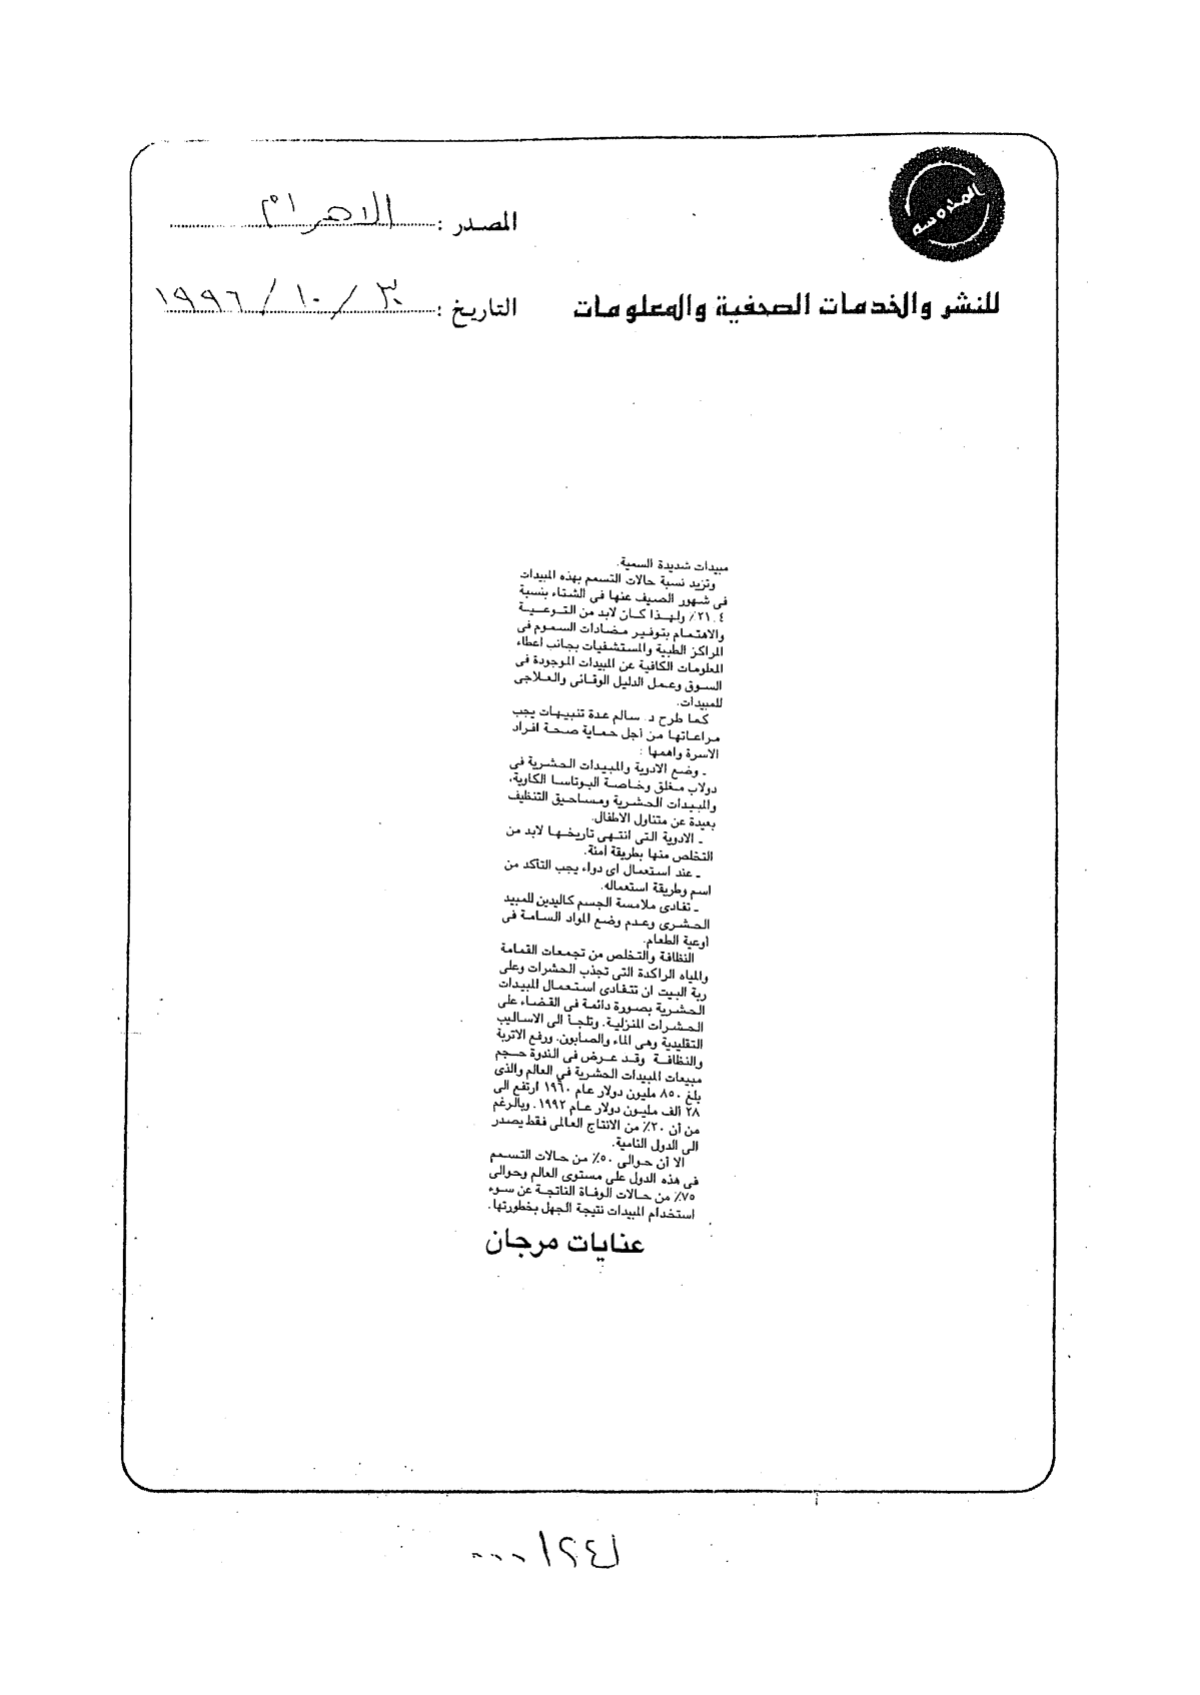 المحروسة
المصدر : الاهرام
للنشر والخدمات الصحفية والمعلومات
التاريخ : ٣٠ / ١٠ / ١٩٩٦
مبيدات شديدة السمية.
وتزيد نسبة حالات التسمم بهذه المبيدات
فى شهور الصيف عنها فى الشتاء بنسبة
٢١.٤٪ ولهذا كان لابد من التوعية
والاهتمام بتوفير مضادات السموم فى
المراكز الطبية والمستشفيات بجانب اعطاء
المعلومات الكافية عن المبيدات الموجودة فى
السوق وعمل الدليل الوقائى والعلاجى
للمبيدات.
كما طرح د. سالم عدة تنبيهات يجب
مراعاتها من أجل حماية صحة افراد
الاسرة واهمها :
ـ وضع الادوية والمبيدات الحشرية فى
دولاب مغلق وخاصة البوتاسا الكاوية،
والمبيدات الحشرية ومساحيق التنظيف
بعيدة عن متناول الاطفال.
ـ الادوية التى انتهى تاريخها لابد من
التخلص منها بطريقة امنة.
ـ عند استعمال اى دواء يجب التأكد من
اسم وطريقة استعماله.
ـ تفادى ملامسة الجسم كاليدين للمبيد
الحشرى وعدم وضع المواد السامة فى
أوعية الطعام.
النظافة والتخلص من تجمعات القمامة
والمياه الراكدة التى تجذب الحشرات وعلى
ربة البيت ان تتفادى استعمال المبيدات
الحشرية بصورة دائمة فى القضاء على
الحشرات المنزلية. وتلجأ الى الاساليب
التقليدية وهى الماء والصابون. ورفع الاتربة
والنظافة وقد عرض فى الندوة حجم
مبيعات المبيدات الحشرية في العالم والذى
بلغ ٨٥٠ مليون دولار عام ١٩٦٠ ارتفع الى
٢٨ الف مليون دولار عام ١٩٩٢. وبالرغم
من أن ٢٠٪ من الانتاج العالمى فقط يصدر
الى الدول النامية.
الا أن حوالى ٥٠٪ من حالات التسمم
فى هذه الدول على مستوى العالم وحوالى
٧٥٪ من حالات الوفاة الناتجة عن سوء
استخدام المبيدات نتيجة الجهل بخطورتها.
عنايات مرجان